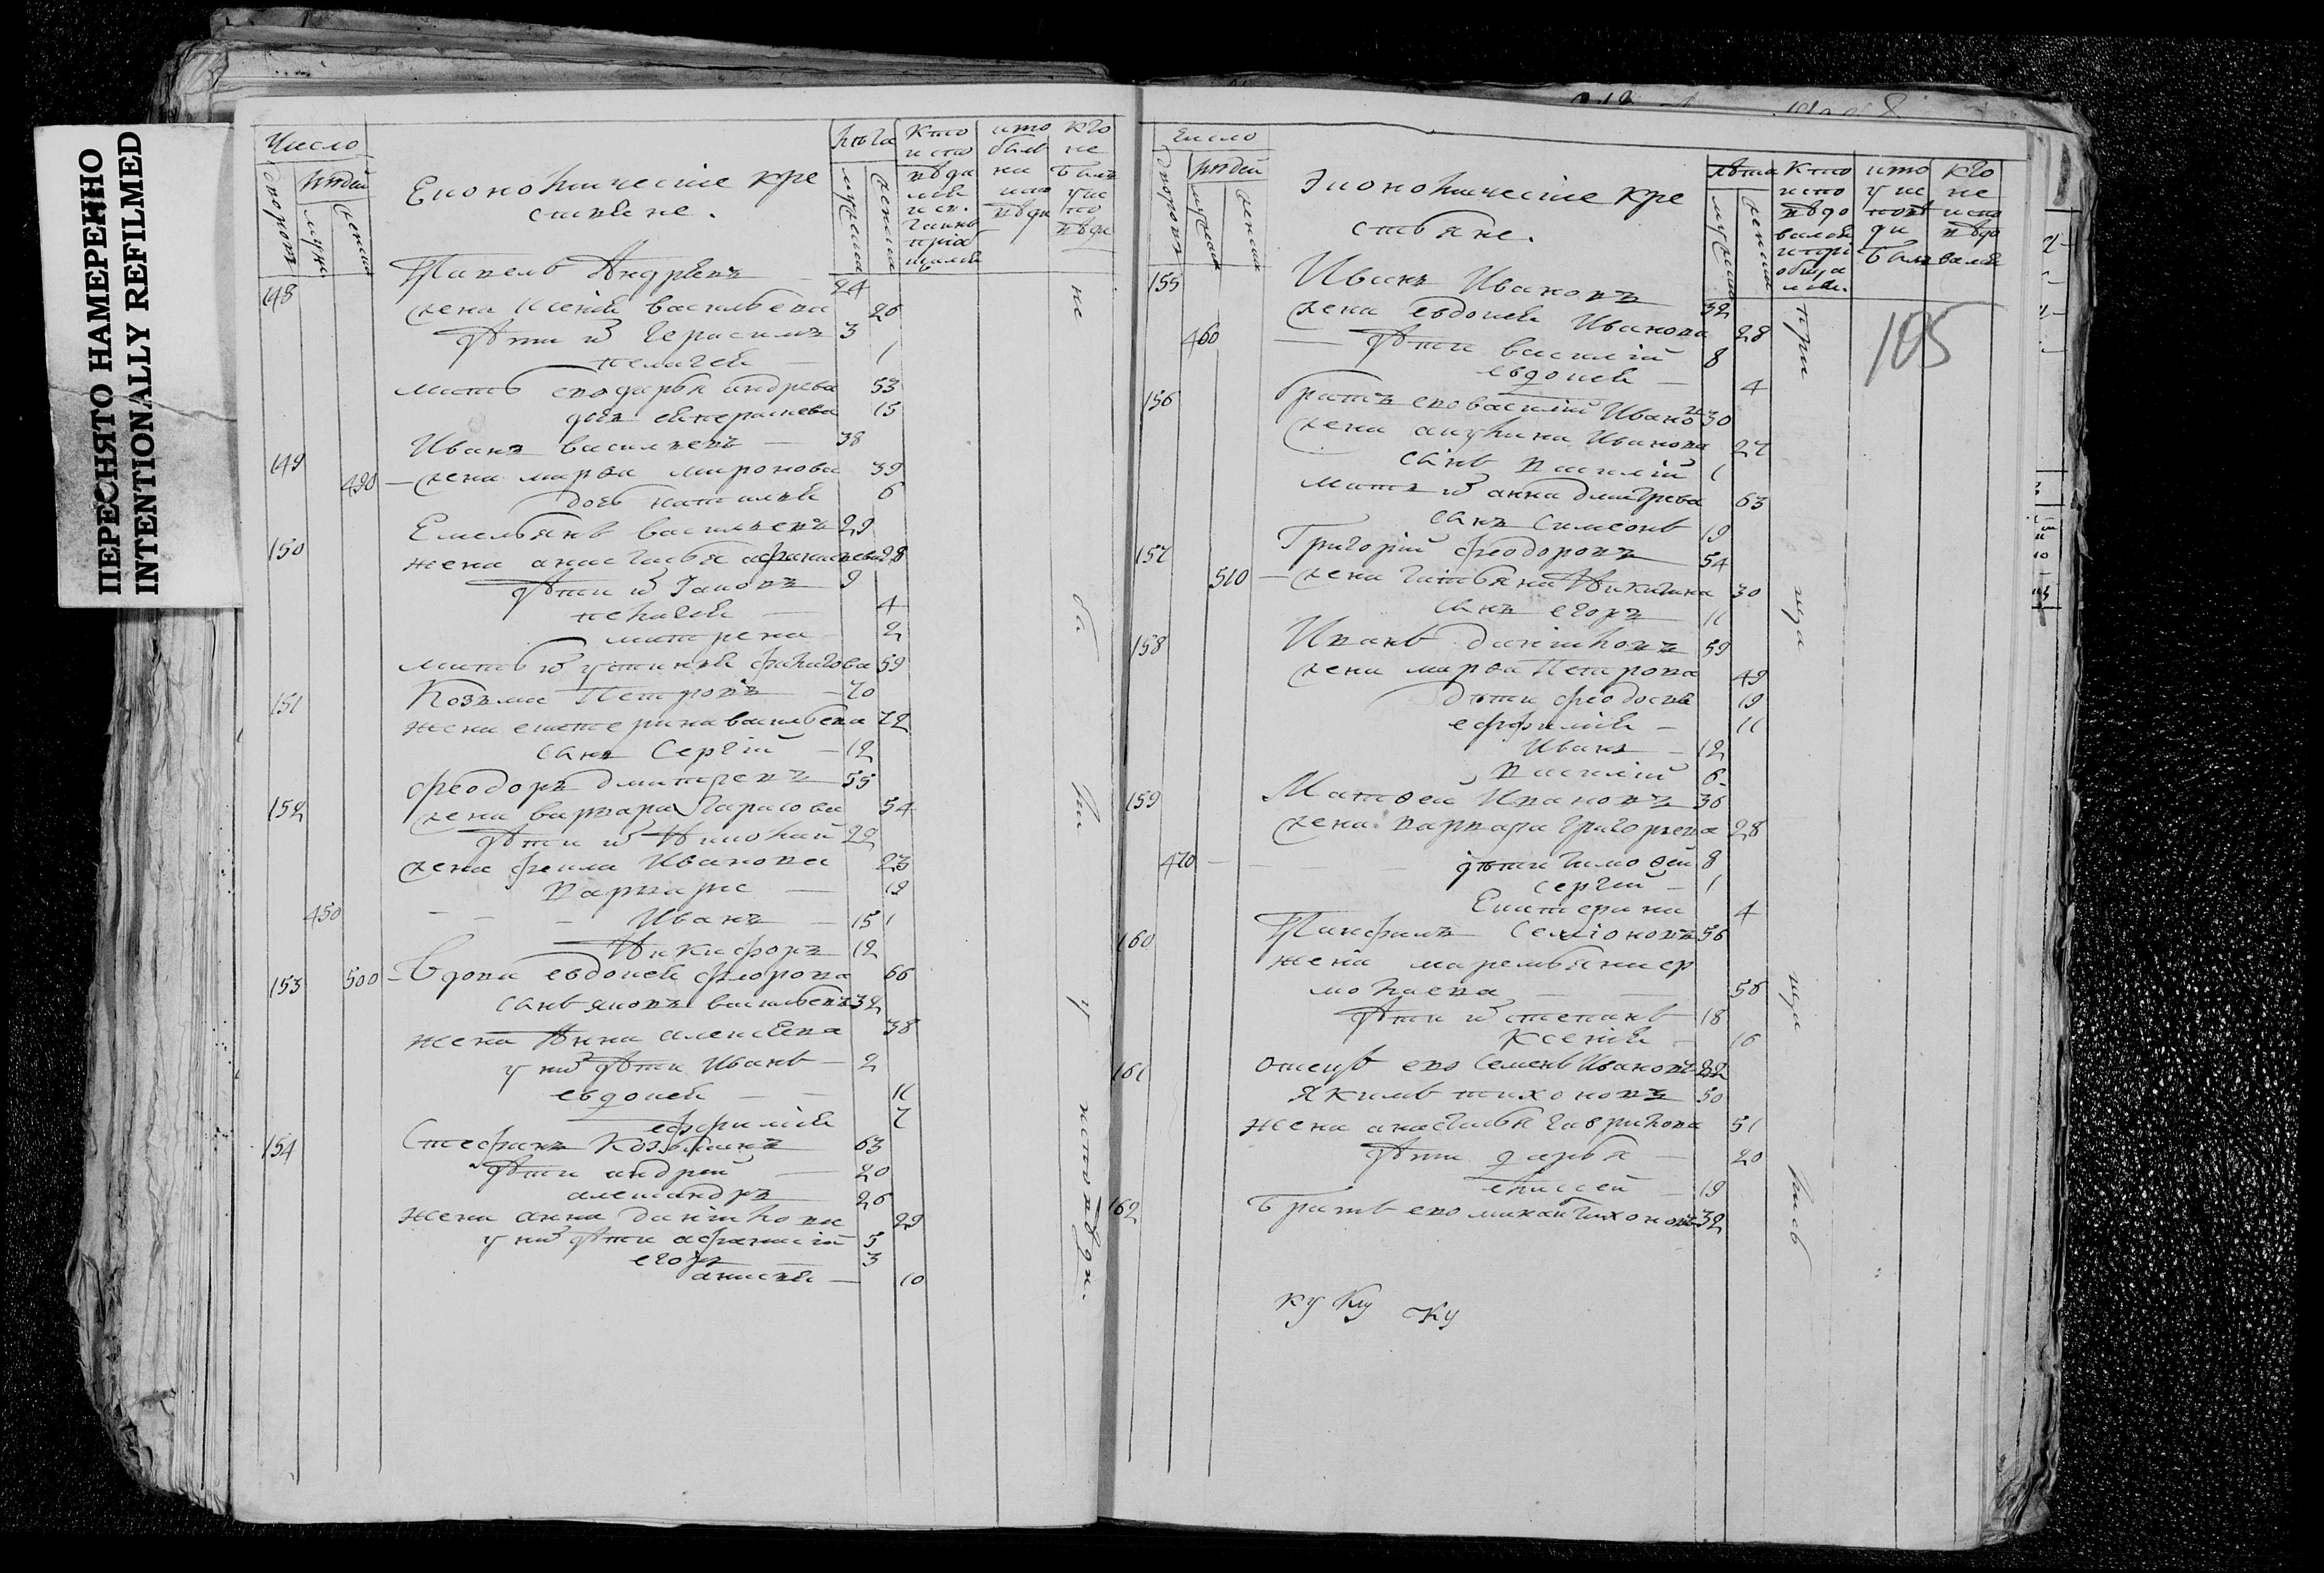 ПЕРЕСНЯТО НАМЕРЕННО
INTENTIONALLY REFILMED
Число
дворовъ
людей
мужс
женска
Економическіе кре
стьяне.
лѣта
мужеска
женска
Кто
испо
вѣда
лся
и св.
таинъ
пріоб
щался
кто
былъ
на
испо
вѣди
кто
не
былъ
у ис
по
вѣди
148 Павелъ Андрѣевъ 24
жена Ксенія васильева 26
дѣти их Герасимъ 3
пелагея 1
мать его дарья андрева 53
дочь 15
149 Иванъ васильевъ 38
490 жена марѳа миронова 39
дочь наталья 6
150 Емельянъ васильевъ 29
жена анастасья афанасьева 28
дѣти их Іаковъ 9
пелагея 4
матрена 2
мать их устинья филатова 59
151 Козьма Петровъ 70
жена екатерина васильева 72
сынъ Сергій 12
152 феодоръ дмитревъ 55
жена варвара тарасова 54
дѣти их Николай 22
жена фекла Иванова 23
Варвара 19
450 Иванъ 15
Никифоръ 12
153 500 вдова евдокея флорова 66
сынъ яковъ васильевъ 32
жена Анна алексѣева 38
у них дѣти Иванъ 2
евдокея 11
ефимія 7
154 Стефанъ Козьминъ 63
дѣти андрей 20
александръ 26
жена анна данилова 29
у них дѣти афанасій 5
егоръ 3
анисья 10
не были у исповѣди.
Число
дворовъ
людей
мужеска
женска
Экономическіе кре
стьяне.
лѣта
мужеска
женска
Кто
испо
вѣдо
вался
и прі
обща
лся.
кто
у ис
повѣ
ди
былъ
кто
не
испо
вѣдо
вался
105
155 Иванъ Ивановъ 32
жена евдокея Иванова 28
460 дѣти василій 8
евдокея 4
156 братъ его василій Ивановъ 30
жена акулина Иванова 27
сынъ Василій 1
мать их анна дмитрева 63
сынъ Симеонъ 19
157 Григорій феодоровъ 54
510 жена татьяна Никитина 30
сынъ егоръ 11
158 Иванъ даниловъ 59
жена марѳа Петрова 49
дѣти феодосья 19
ефимія 11
Иванъ 12
Василій 6
159 Матѳей Ивановъ 36
жена варвара григорьева 28
470 дѣти тимоѳей 8
сергій 1
Екатерина 4
160 Панфилъ Семіоновъ 56
жена маремьяна ер
молаева 56
дѣти их степанъ 18
Ксенія 16
161 отецъ его Семенъ Ивановъ 82
Якимъ тихоновъ 50
жена анастасья гаврилова 51
дѣти дарья 20
елисей 19
162 братъ его михаилъ тихоновъ 32
при ща ща лись
ку ку ку